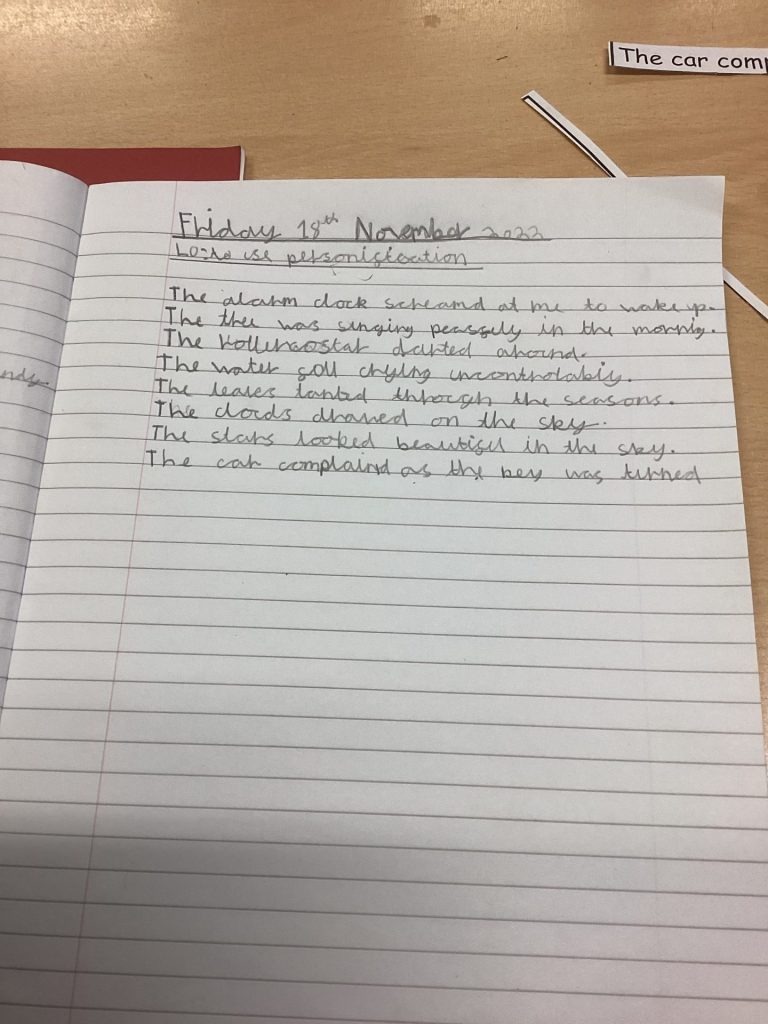 The car com
Friday 18th November 2022
LO: to use personification
The alarm clock screamd at me to wake up.
The tree was singing peassely in the mornig.
The rollercoostar darted around.
The water fell crying uncontrolably.
The leaves through the seasons.
The clouds on the sky.
The stars looked beautiful in the sky.
The car complaind as the key was turned